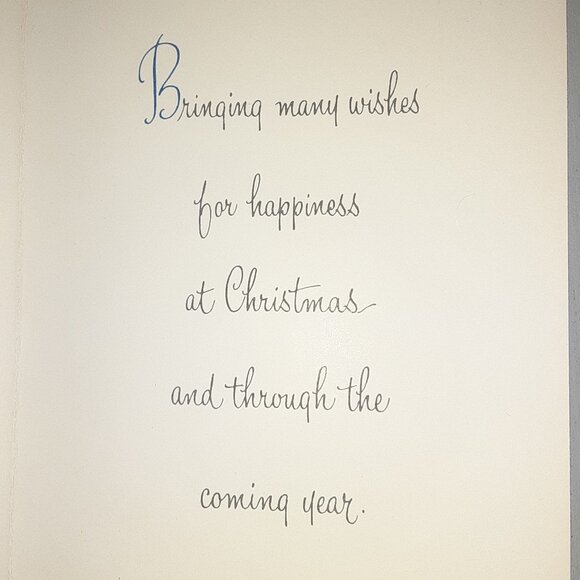 Bringing many wishes
for happiness
at Christmas
and through the
coming year.